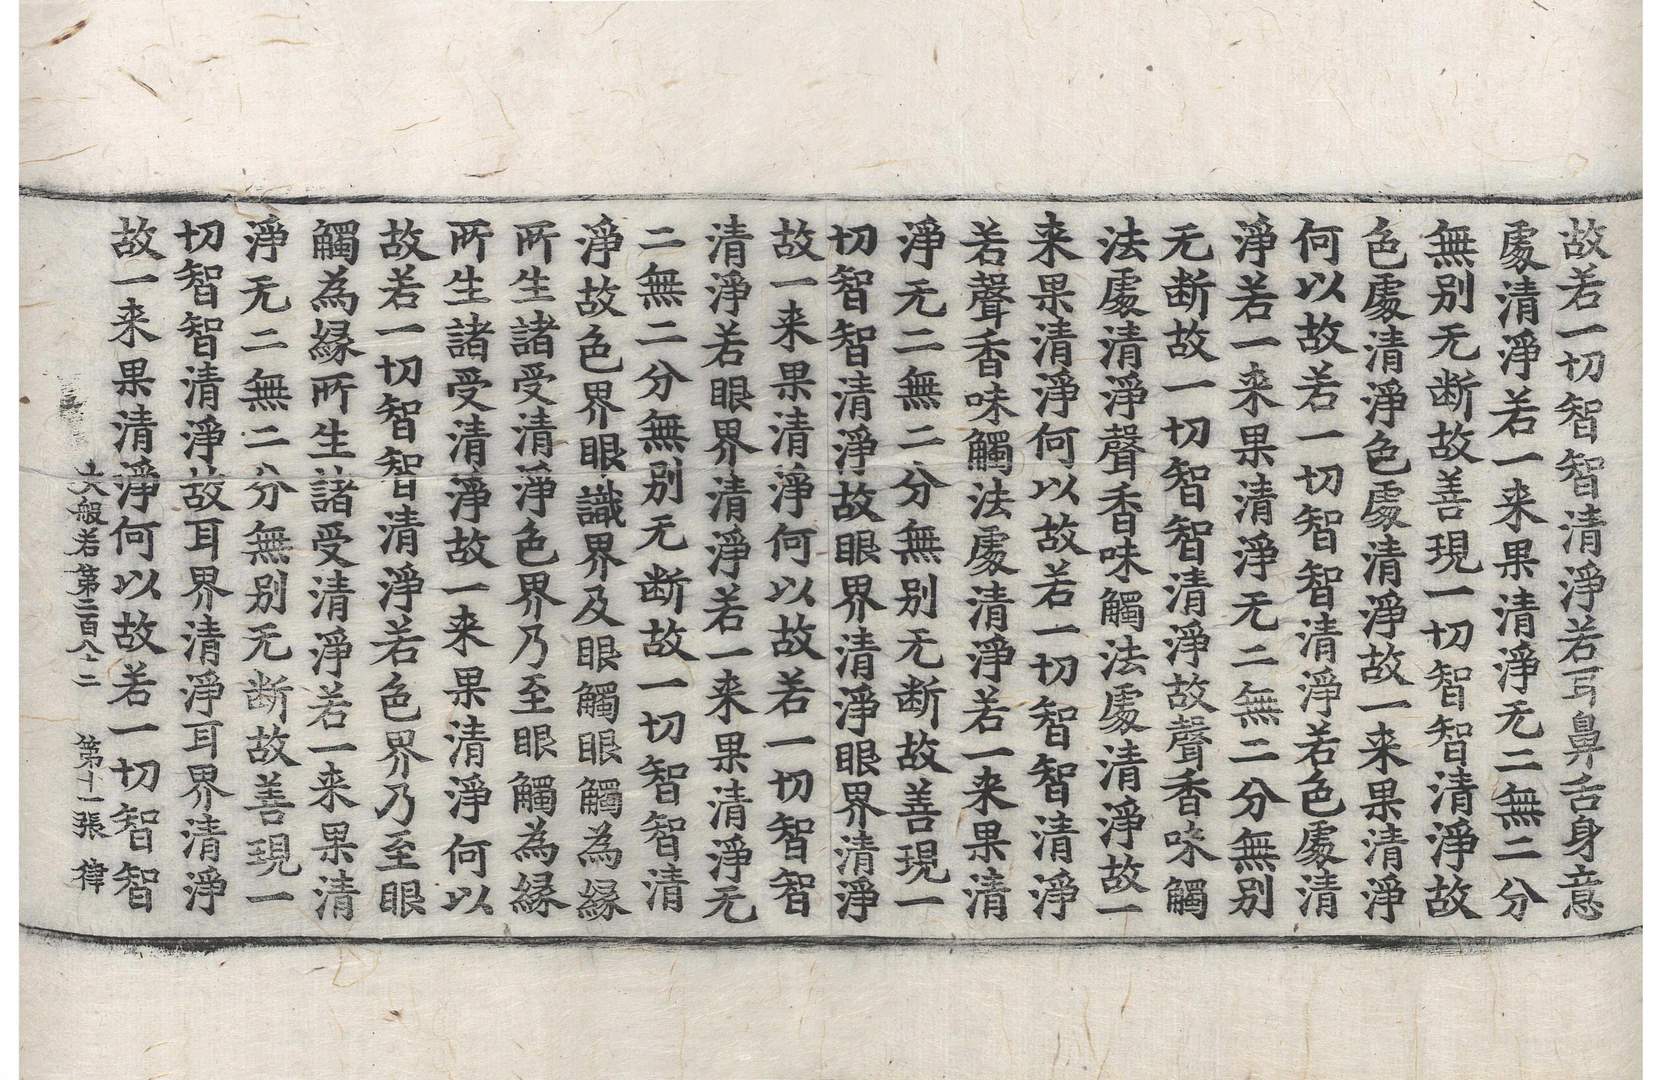 故若一切智智清淨若耳鼻舌身意
處清淨若一来果清淨无二無二分
無別无断故善現一切智智清淨故
色處清淨色處清淨故一来果清淨
何以故若一切智智清淨若色處清
淨若一来果清淨无二無二分無別
无断故一切智智清淨故聲香味觸
法處清淨聲香味觸法處清淨故一
来果清淨何以故若一切智智清淨
若聲香味觸法處清淨若一来果清
淨无二無二分無別无断故善現一
切智智清淨故眼界清淨眼界清淨
故一来果清淨何以故若一切智智
清淨若眼界清淨若一来果清淨无
二無二分無別无断故一切智智清
淨故色界眼識界及眼觸眼觸為縁
所生諸受清淨色界乃至眼觸為縁
所生諸受清淨故一来果清淨何以
故若一切智智清淨若色界乃至眼
觸為縁所生諸受清淨若一来果清
淨无二無二分無別无断故善現一
切智智清淨故耳界清淨耳界清淨
故一来果清淨何以故若一切智智
大般若第二百八十二 第十一張 律